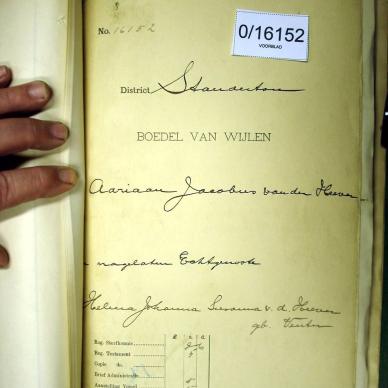 8
No. 16152
0/16152
VOORBLAD
District Standerton
BOEDEL VAN WIJLEN
Adriaan Jacobus van der Heever
nagelaten Echtgenoote
Helena Johanna Susanna v. d. Heever
gb. Venter
Reg. Sterfkennis
Reg. Testament
Copie do.
Brief Administratie
Aanstelling Voogd